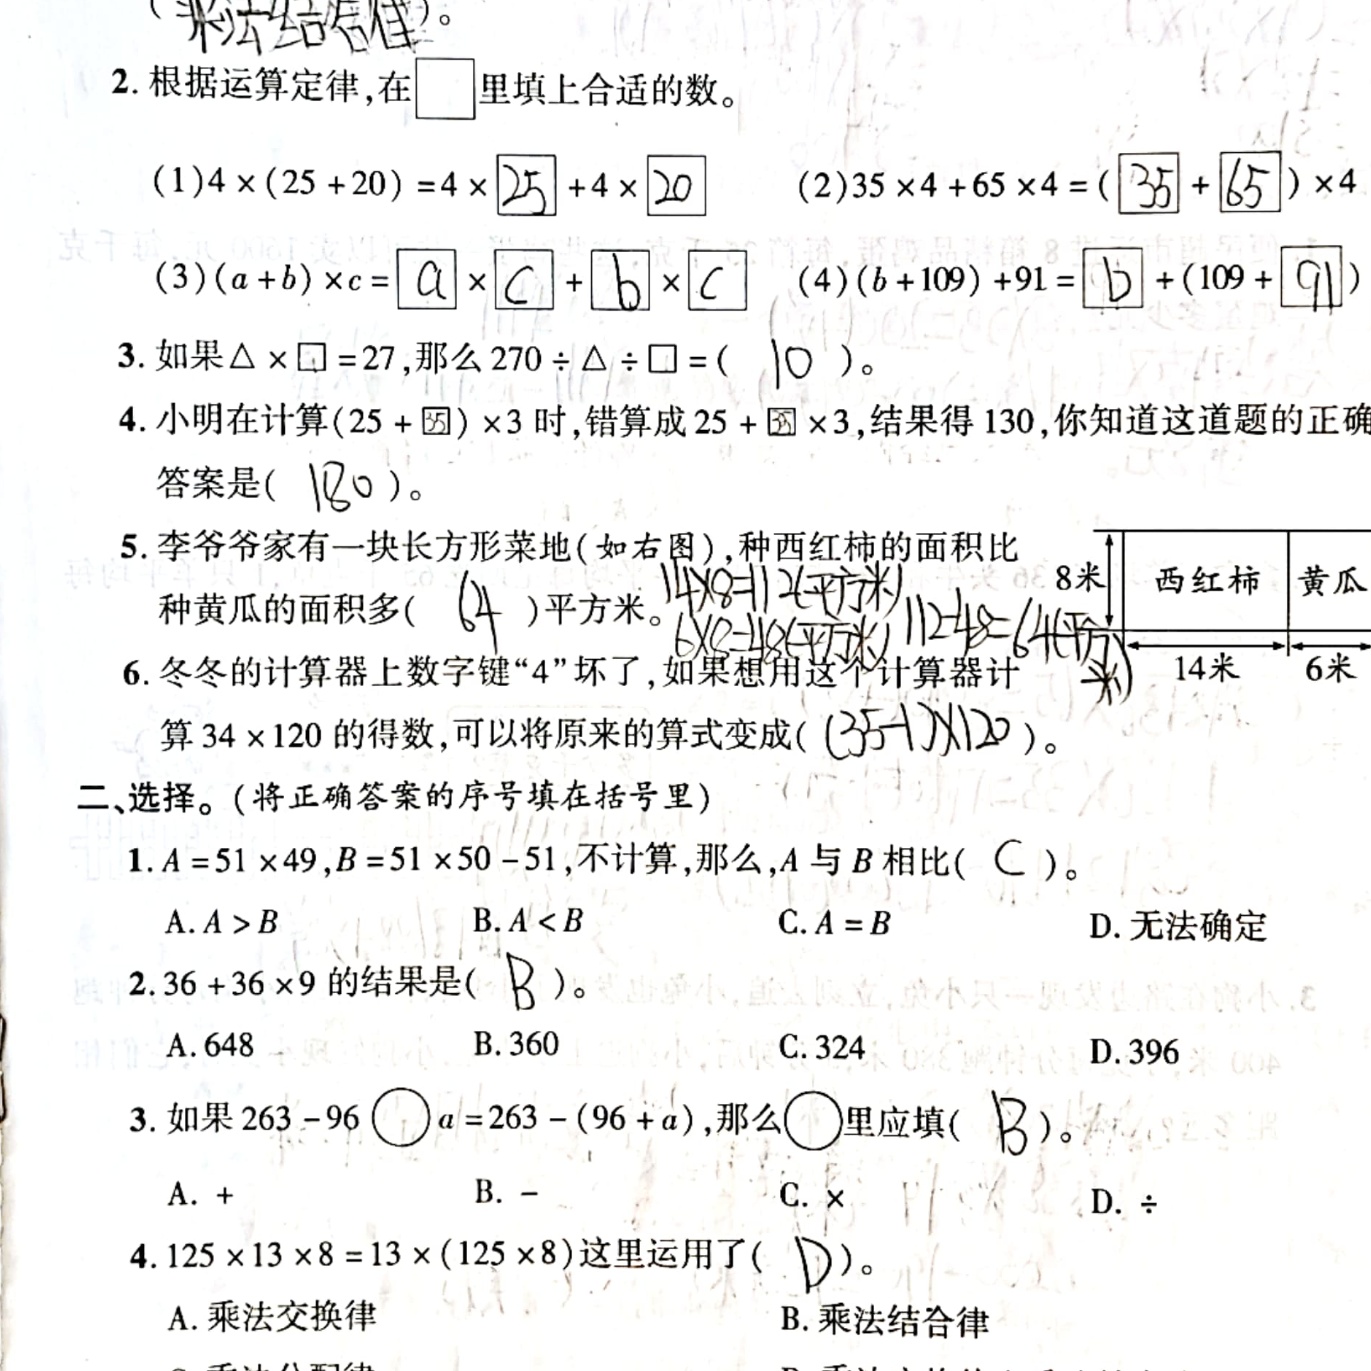 (乘法结合律)。
2. 根据运算定律,在□里填上合适的数。
(1)4×(25+20)=4×25+4×20 (2)35×4+65×4=(35+65)×4
(3)(a+b)×c=a×c+b×c (4)(b+109)+91=b+(109+91)
3. 如果△×□=27,那么270÷△÷□=( 10 )。
4. 小明在计算(25+35)×3时,错算成25+35×3,结果得130,你知道这道题的正确
答案是( 180 )。
5. 李爷爷家有一块长方形菜地(如右图),种西红柿的面积比
种黄瓜的面积多( 64 )平方米。
14×8=112(平方米)
6×8=48(平方米) 112-48=64(平方米)
8米 西红柿 黄瓜
14米 6米
6. 冬冬的计算器上数字键“4”坏了,如果想用这个计算器计
算34×120的得数,可以将原来的算式变成( (35-1)×120 )。
二、选择。(将正确答案的序号填在括号里)
1. A=51×49,B=51×50-51,不计算,那么,A与B相比( C )。
A. A>B B. A<B C. A=B D. 无法确定
2. 36+36×9的结果是( B )。
A. 648 B. 360 C. 324 D. 396
3. 如果263-96○a=263-(96+a),那么○里应填( B )。
A. + B. - C. × D. ÷
4. 125×13×8=13×(125×8)这里运用了( D )。
A. 乘法交换律 B. 乘法结合律